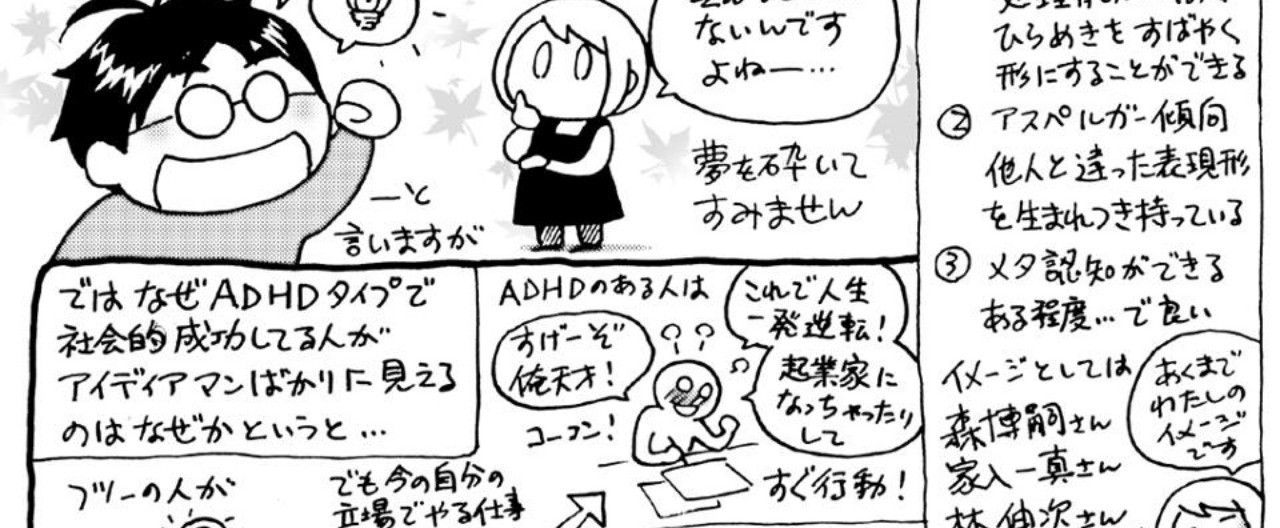 ないんです
よねー…
ーと
言いますが
夢を砕いて
すみません
ではなぜADHDタイプで
社会的成功してる人が
アイディアマンばかりに見える
のはなぜかというと…
ADHDのある人は
すげーぞ
俺天才!
コーフン!
これで人生
一発逆転!
起業家に
なっちゃったり
して
すぐ行動!
フツーの人が
でも今の自分の
立場でやる仕事
ひらめきをすばやく
形にすることができる
② アスペルガー傾向
他人と違った表現形
を生まれつき持っている
③ メタ認知ができる
ある程度…で良い
イメージとしては
森博嗣さん
家入一真さん
あくまで
わたしの
イメージ
です